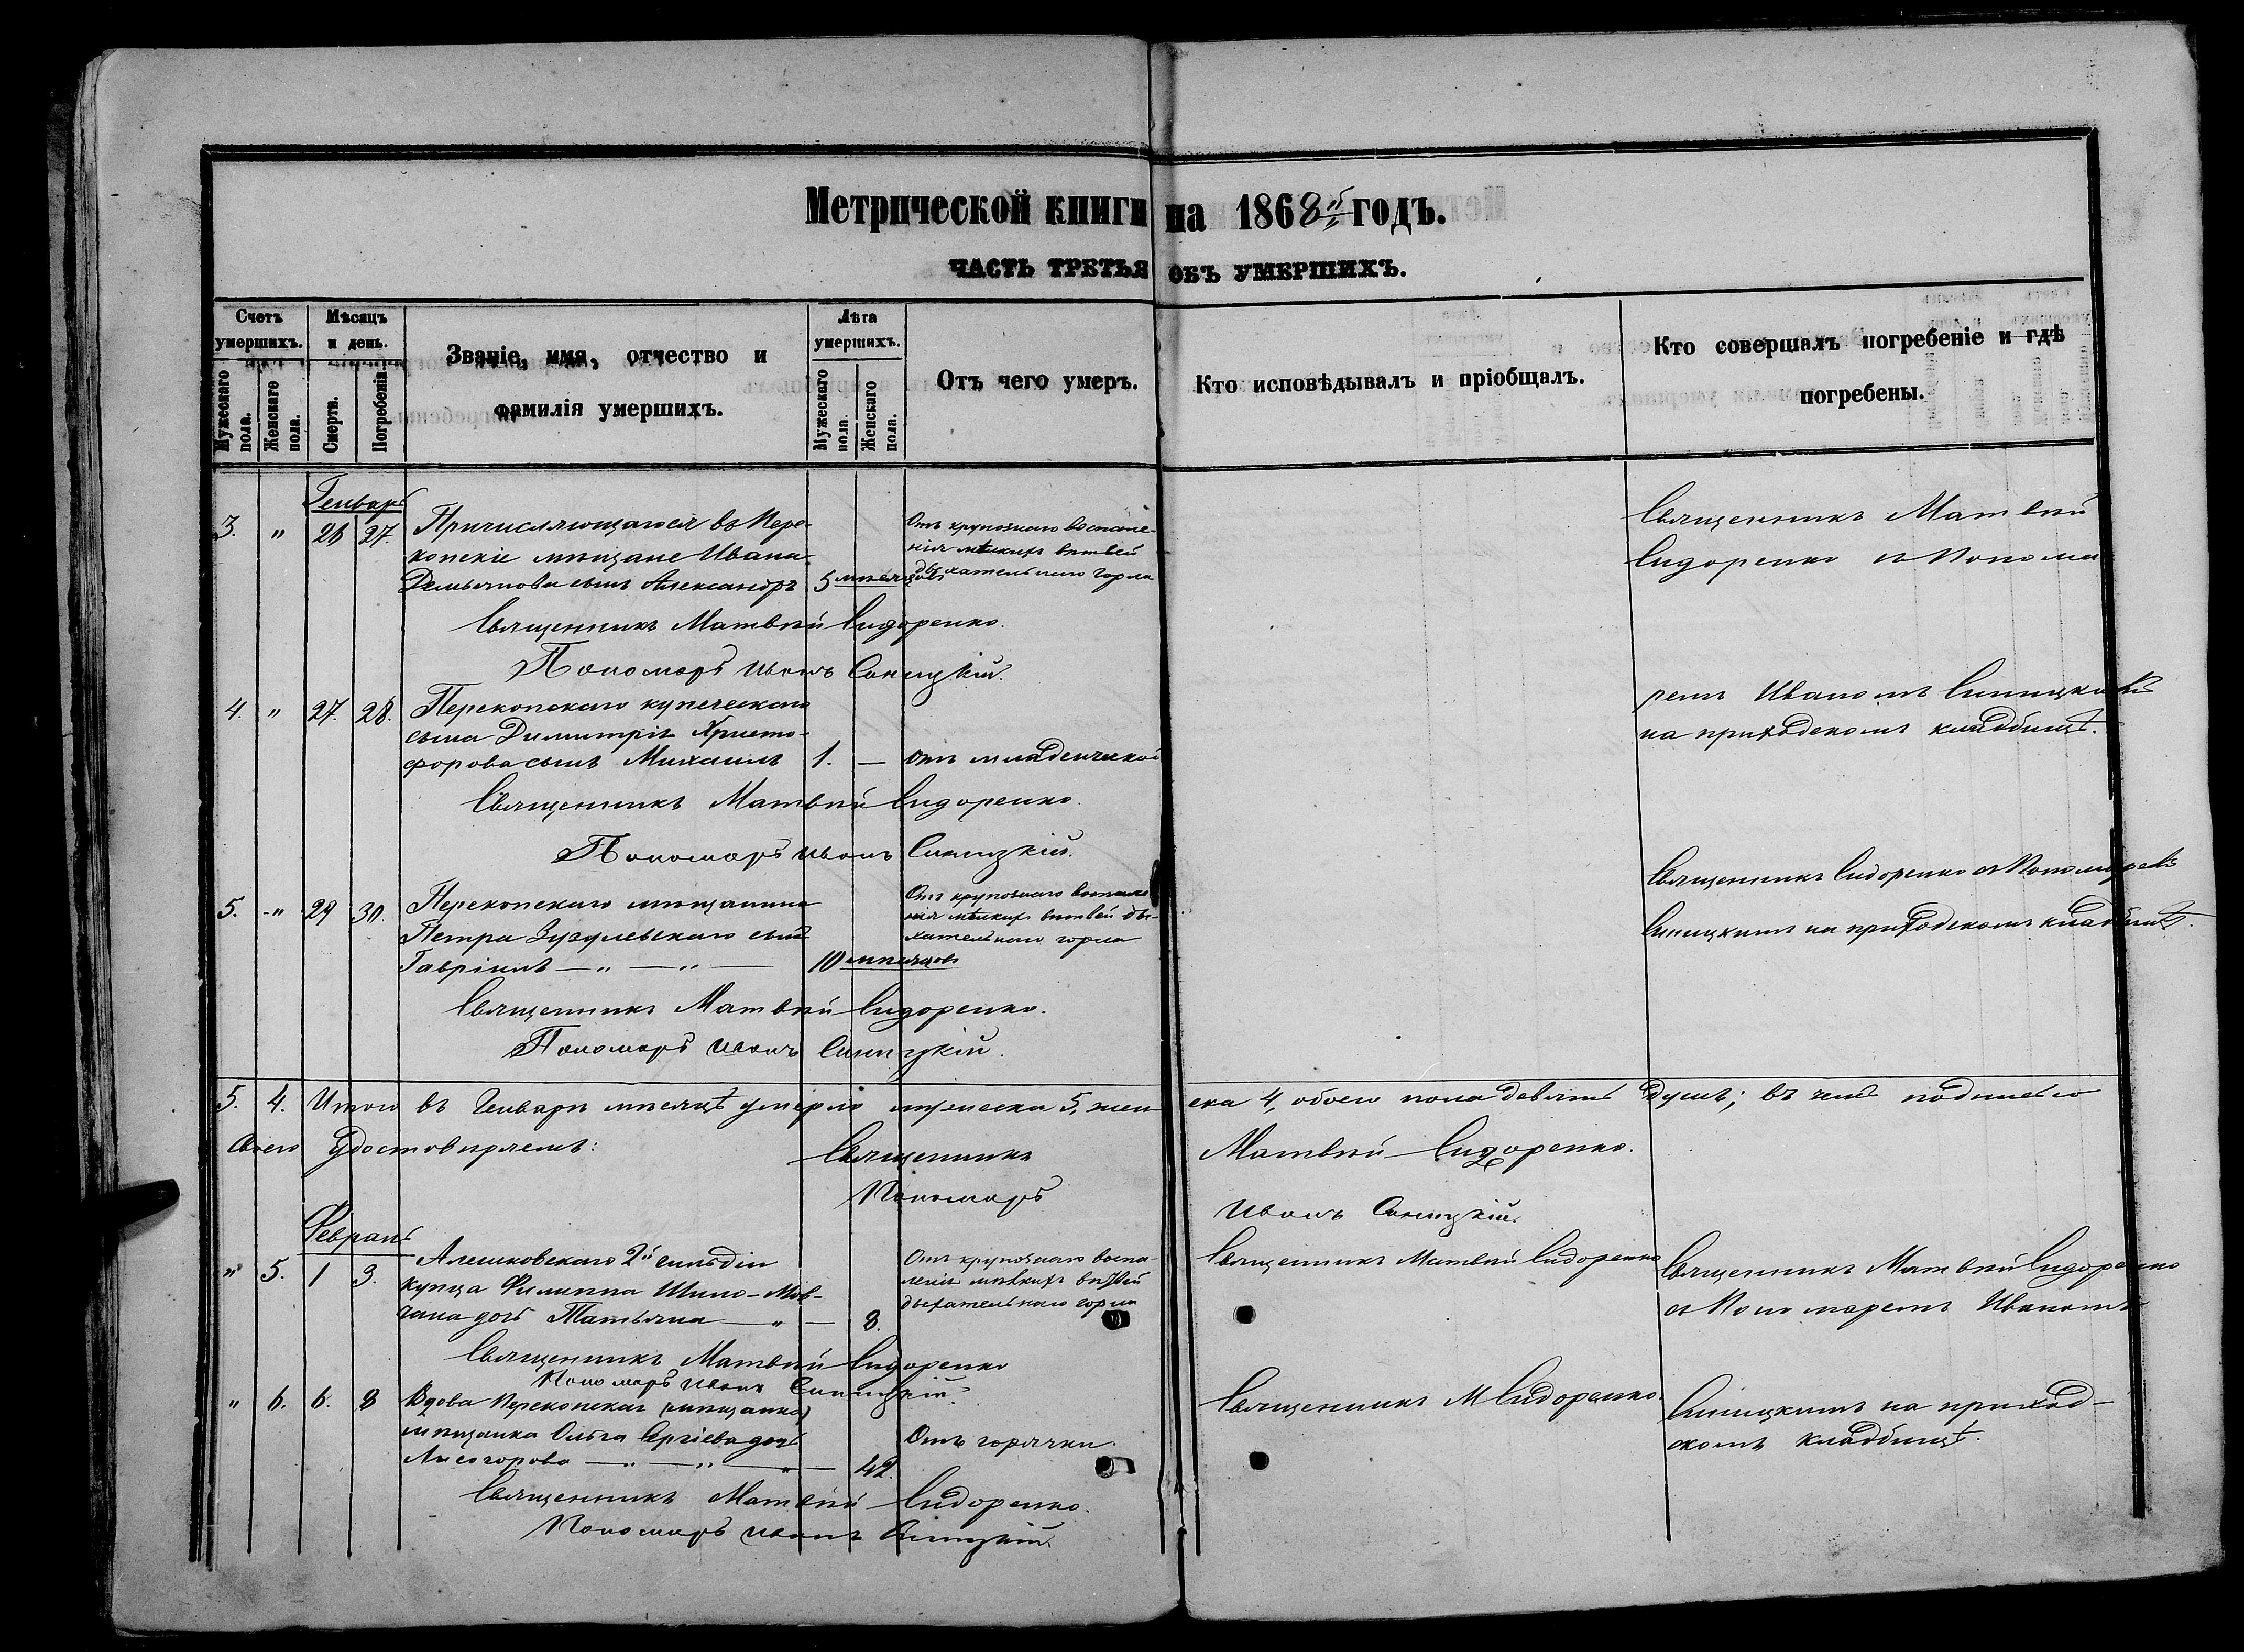 Метрической книги на 1868й годъ.
ЧАСТЬ ТРЕТЬЯ ОБЪ УМЕРШИХЪ.
Счетъ умершихъ.
Мужескаго пола.
Женскаго пола.
Мѣсяцъ и день.
Смерти.
Погребенія.
Званіе, имя, отчество и
фамилія умершихъ.
Лѣта умершихъ.
Мужескаго пола.
Женскаго пола.
Отъ чего умеръ.
Кто исповѣдывалъ и пріобщалъ.
Кто совершалъ погребеніе и гдѣ
погребены.
Генварь
3. " 26 27. Причисляющагося въ Пере-
копскіе мѣщане Ивана
Демьянова сынъ Александръ 5 мѣсяцовъ
Отъ крупознаго воспале-
нія мѣлкихъ вѣтвей
дыхательнаго горла
Священникъ Матвѣй
Сидоренко съ Понома
Священникъ Матвѣй Сидоренко.
Пономарь Иванъ Синицкій.
4. " 27. 28. Перекопскаго купеческаго
сына Димитрія Христо-
форова сынъ Михаилъ 1. — отъ младенческой
ремъ Иваномъ Синицкимъ
на приходскомъ кладбищѣ.
Священникъ Матвѣй Сидоренко.
Пономарь Иванъ Синицкій.
5. -" 29 30. Перекопскаго мѣщанина
Петра сынъ
Гавріилъ — " — " — 10 мѣсяцовъ
Отъ крупознаго воспале
нія мѣлкихъ вѣтвей ды-
хательнаго горла
Священникъ Сидоренко съ Пономаремъ
Синицкимъ на приходскомъ кладбищѣ.
Священникъ Матвѣй Сидоренко.
Пономарь Иванъ Синицкій.
5. 4. Итого въ Генварѣ мѣсяцѣ умерло мужеска 5, жен ска 4, обоего пола девять душъ; въ чемъ подписью
своею Удостовѣряемъ: Священникъ Матвѣй Сидоренко.
Пономарь Иванъ Синицкій.
Февраль
" 5. 1 3. Алешковскаго 2й гильдіи
купца Филиппа Шило-Мов-
чана дочь Татьяна — " — 8.
Отъ крупознаго воспа-
ленія мѣлкихъ вѣтвей
дыхательнаго горла
Священникъ Матвѣй Сидоренко
Священникъ Матвѣй Сидоренко
съ Пономаремъ Иваномъ
Священникъ Матвѣй Сидоренко
Пономарь Иванъ Синицкій.
" 6. 6. 8 Вдова Перекопская (мѣщанка)
мѣщанка Ольга Сергіева дочь
Лисогорова — " — " — " — 42.
Отъ горячки
Священникъ М Сидоренко.
Синицкимъ на приход-
скомъ кладбищѣ.
Священникъ Матвѣй Сидоренко.
Пономарь Иванъ Синицкій.